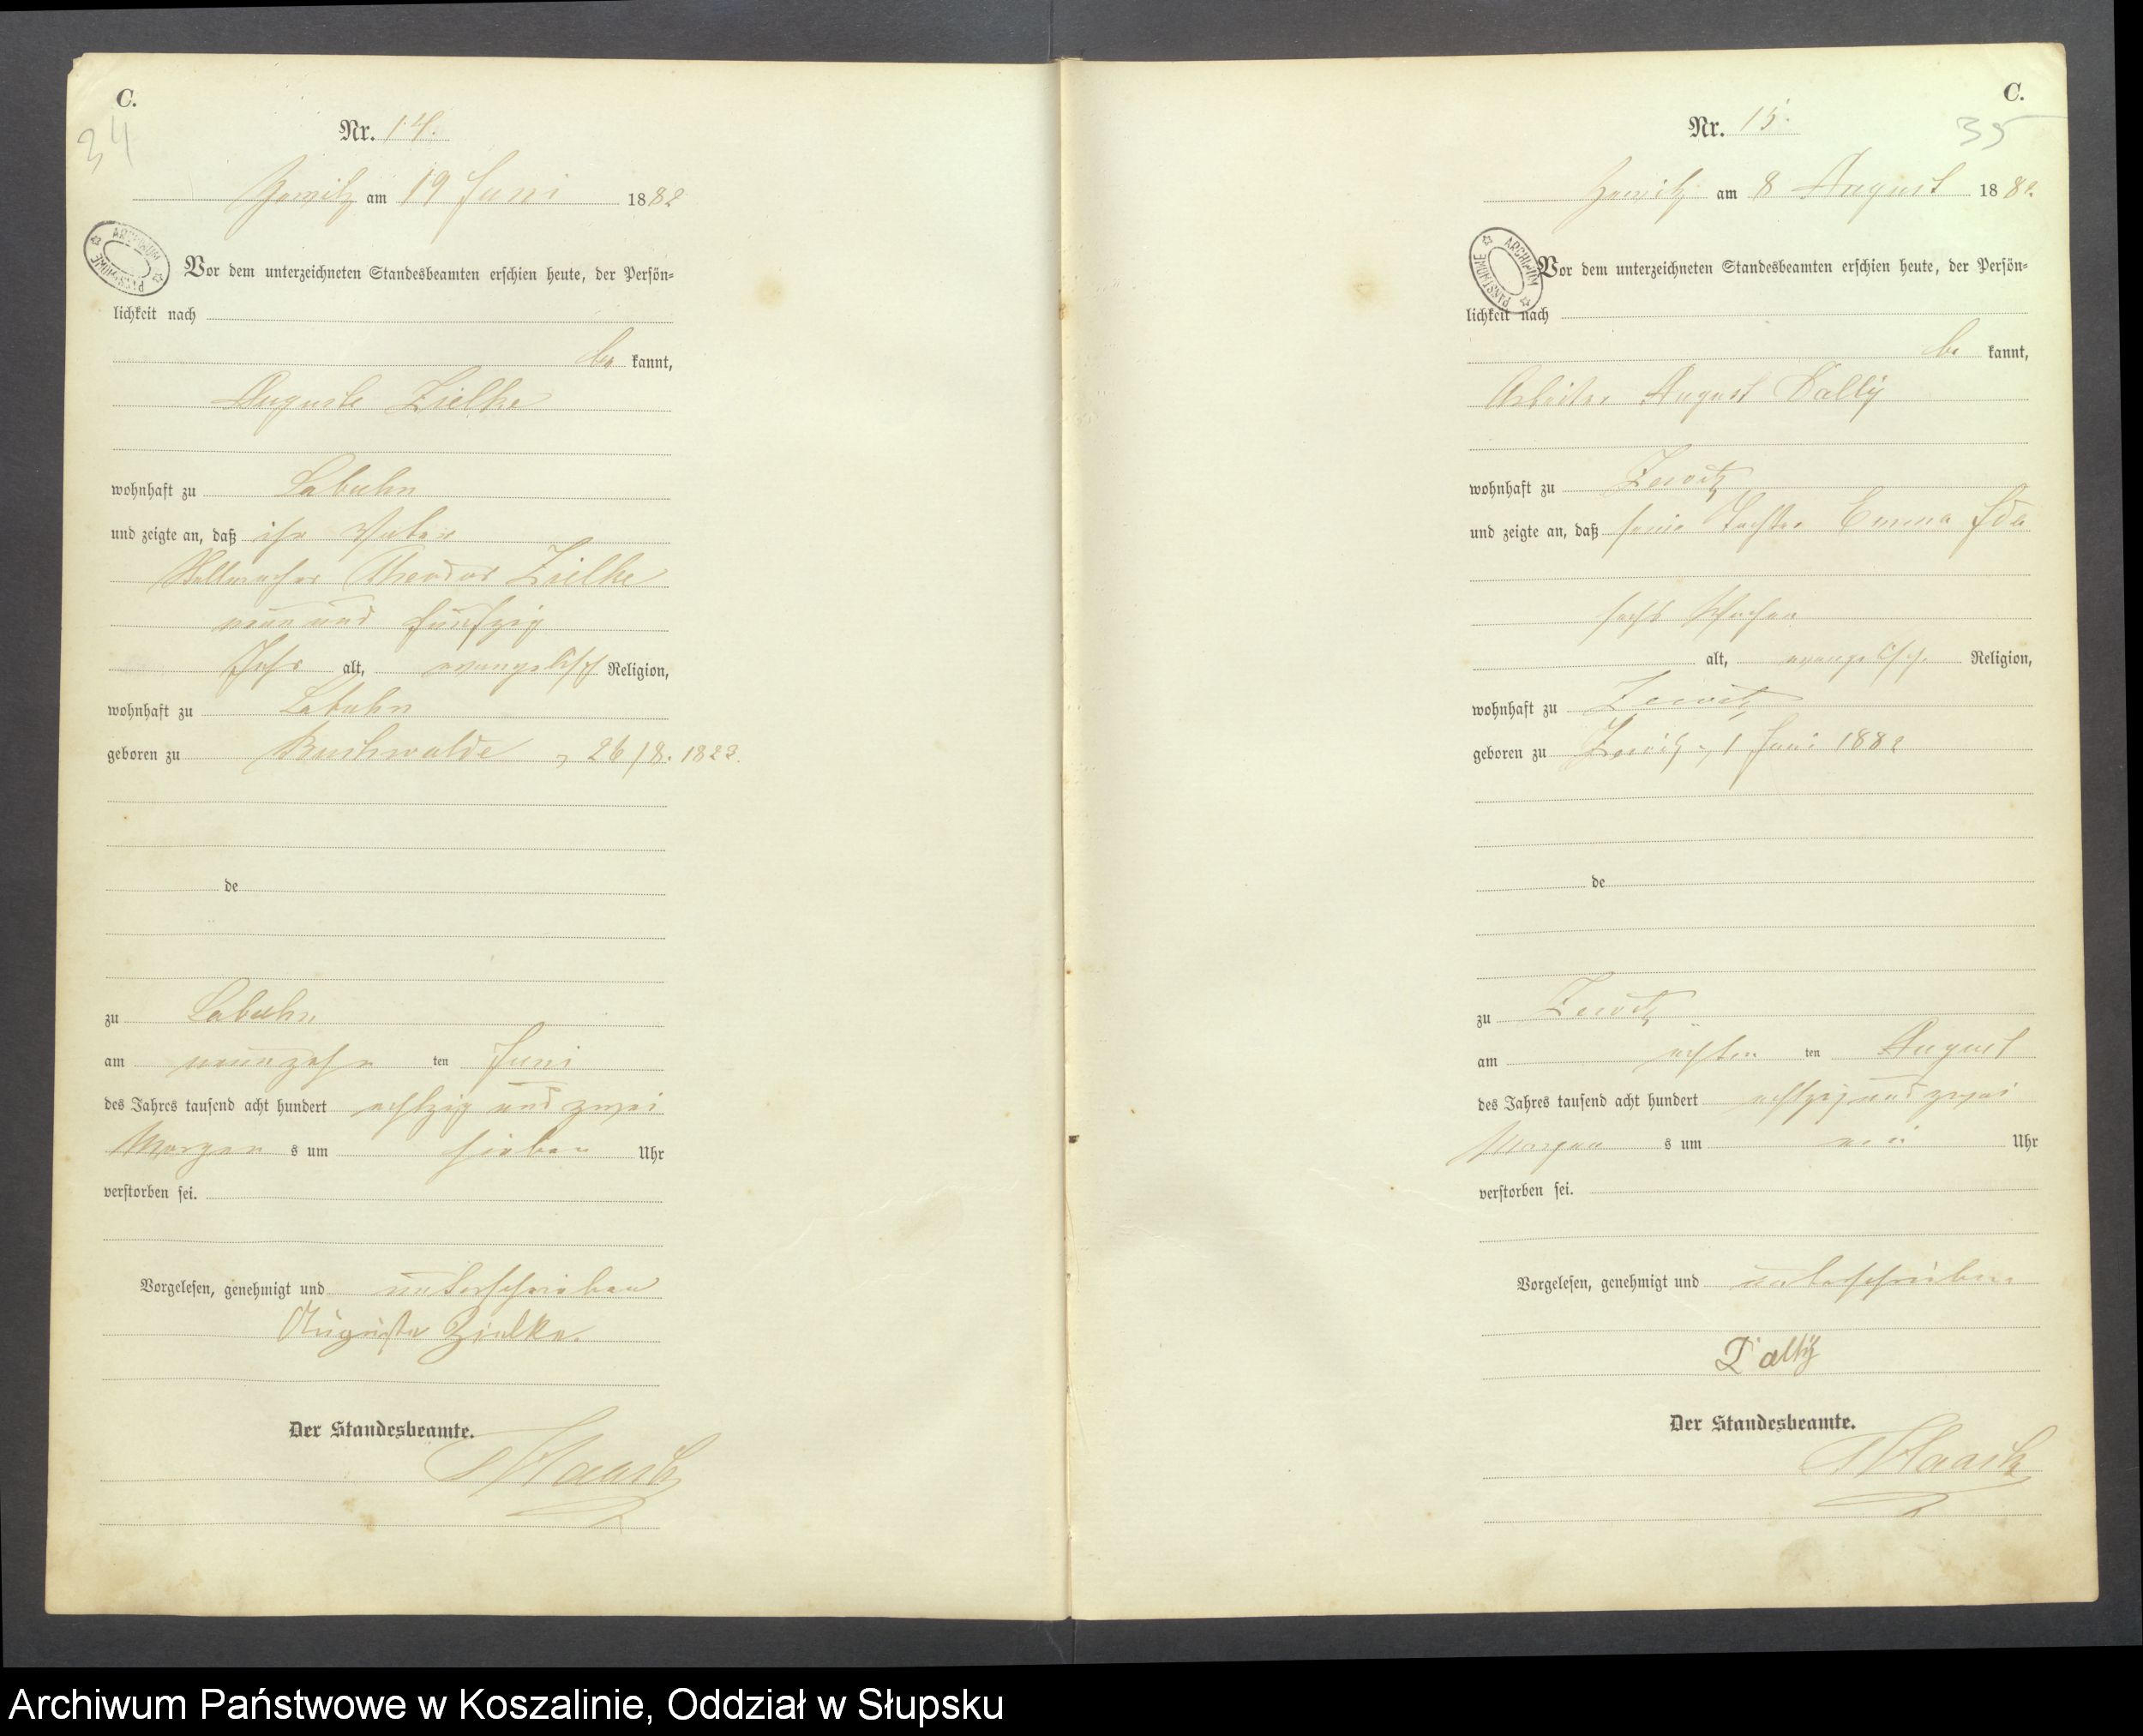 C.
34
Nr. 14.
Zewitz am 19 Juni 1882
ARCHIWUM PAŃSTWOWE
Vor dem unterzeichneten Standesbeamten erschien heute, der Persön-
lichkeit nach
be kannt,
Auguste Zielke
wohnhaft zu Labuhn
und zeigte an, daß ihr Vater
Theodor Zielke
neun und fünfzig
Jahr alt, evangelisch Religion,
wohnhaft zu Labuhn
geboren zu Buchwalde, 26/8. 1823.
de
zu Labuhn
am neunzehn ten Juni
des Jahres tausend acht hundert achtzig und zwei
Morgen s um sieben Uhr
verstorben sei.
Vorgelesen, genehmigt und unterschrieben
Auguste Zielke.
Der Standesbeamte.
C.
35
Nr. 15.
Zewitz am 8 August 1882
ARCHIWUM PAŃSTWOWE
Vor dem unterzeichneten Standesbeamten erschien heute, der Persön-
lichkeit nach
be kannt,
Arbeiter August Dallÿ
wohnhaft zu Zewitz
und zeigte an, daß seine Tochter Emma Ida
sechs Wochen
alt, evangelisch. Religion,
wohnhaft zu Zewitz
geboren zu Zewitz, 1 Juni 1882
de
zu Zewitz
am achten ten August
des Jahres tausend acht hundert achtzig und zwei
Morgen s um Uhr
verstorben sei.
Vorgelesen, genehmigt und unterschrieben
Dallÿ
Der Standesbeamte.
Archiwum Państwowe w Koszalinie, Oddział w Słupsku